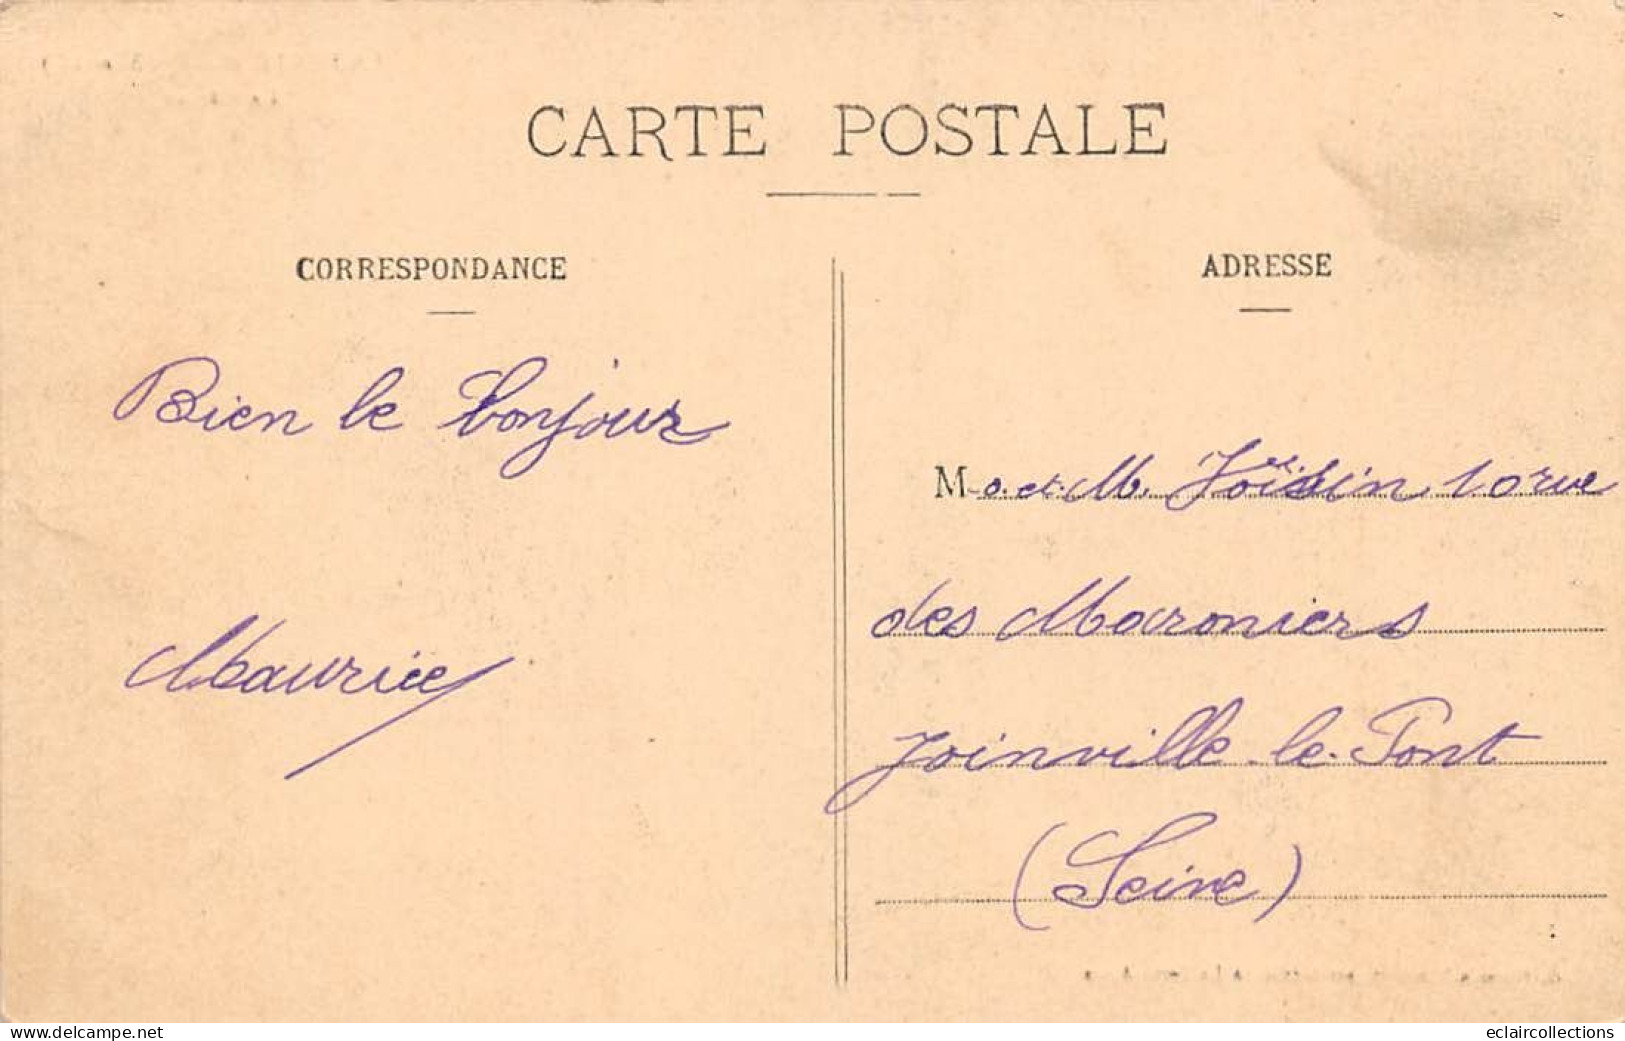 CARTE POSTALE
CORRESPONDANCE
Bien le bonjour
Maurice
ADRESSE
M. et M. 10 rue
des Maroniers
Joinville-le-Pont
(Seine)
www.delcampe.net
eclaircollections